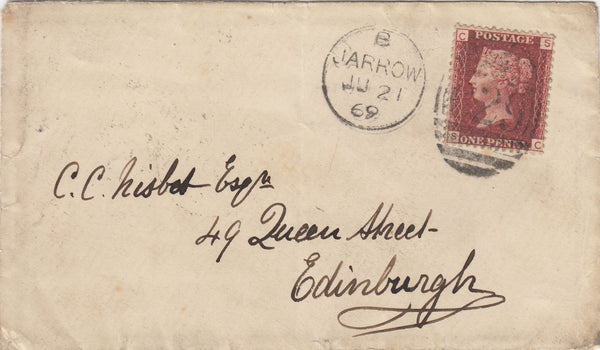 B
JARROW
JU 21
69
C S
POSTAGE
S C
ONE PENNY
C. C. Nisbet Esqr
49 Queen Street
Edinburgh